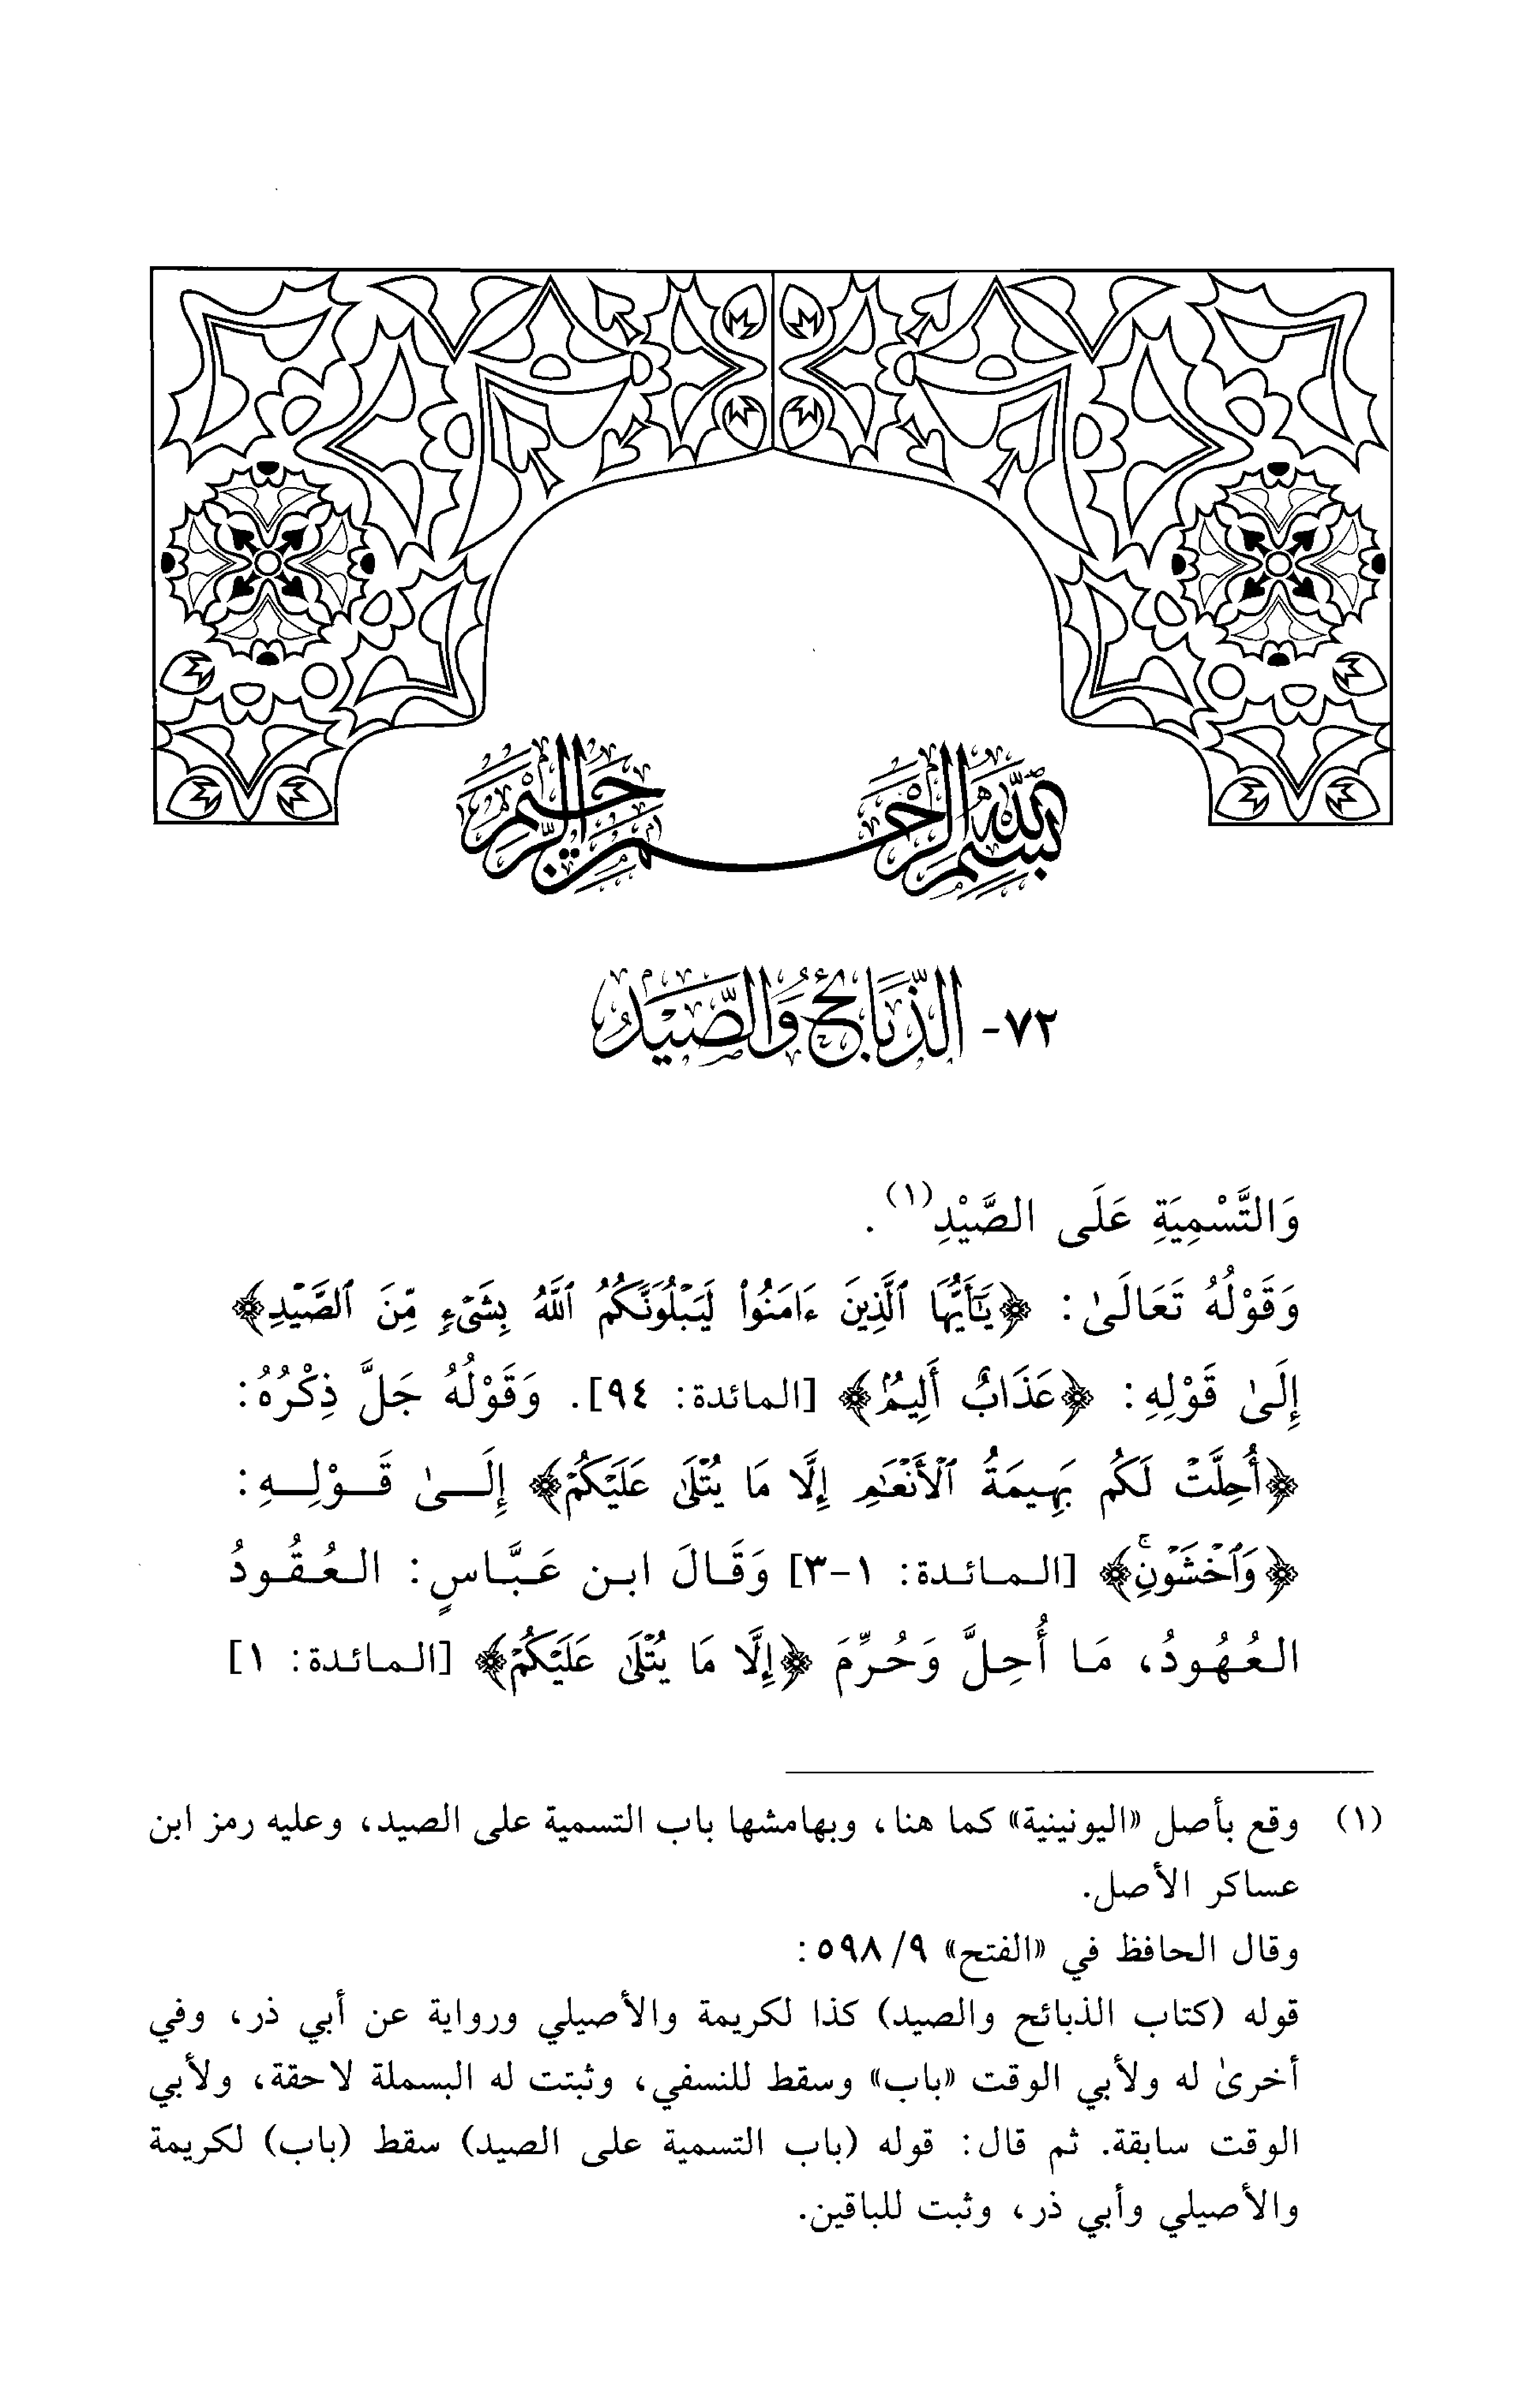 بِسْمِ اللَّهِ الرَّحْمَنِ الرَّحِيمِ
٧٢- الذَّبَائِحُ وَالصَّيْدُ
وَالتَّسْمِيَةِ عَلَى الصَّيْدِ(١).
وَقَوْلُهُ تَعَالَىٰ: ﴿يَٰٓأَيُّهَا ٱلَّذِينَ ءَامَنُوا۟ لَيَبْلُوَنَّكُمُ ٱللَّهُ بِشَىْءٍ مِّنَ ٱلصَّيْدِ﴾
إِلَىٰ قَوْلِهِ: ﴿عَذَابٌ أَلِيمٌ﴾ [المائدة: ٩٤]. وَقَوْلُهُ جَلَّ ذِكْرُهُ:
﴿أُحِلَّتْ لَكُم بَهِيمَةُ ٱلْأَنْعَٰمِ إِلَّا مَا يُتْلَىٰ عَلَيْكُمْ﴾ إِلَىٰ قَوْلِهِ:
﴿وَٱخْشَوْنِۚ﴾ [المائدة: ١-٣] وَقَالَ ابن عَبَّاسٍ: العُقُودُ
العُهُودُ، مَا أُحِلَّ وَحُرِّمَ ﴿إِلَّا مَا يُتْلَىٰ عَلَيْكُمْ﴾ [المائدة: ١]
(١) وقع بأصل «اليونينية» كما هنا، وبهامشها باب التسمية على الصيد، وعليه رمز ابن
عساكر الأصل.
وقال الحافظ في «الفتح» ٩/ ٥٩٨:
قوله (كتاب الذبائح والصيد) كذا لكريمة والأصيلي ورواية عن أبي ذر، وفي
أخرىٰ له ولأبي الوقت «باب» وسقط للنسفي، وثبتت له البسملة لاحقة، ولأبي
الوقت سابقة. ثم قال: قوله (باب التسمية على الصيد) سقط (باب) لكريمة
والأصيلي وأبي ذر، وثبت للباقين.